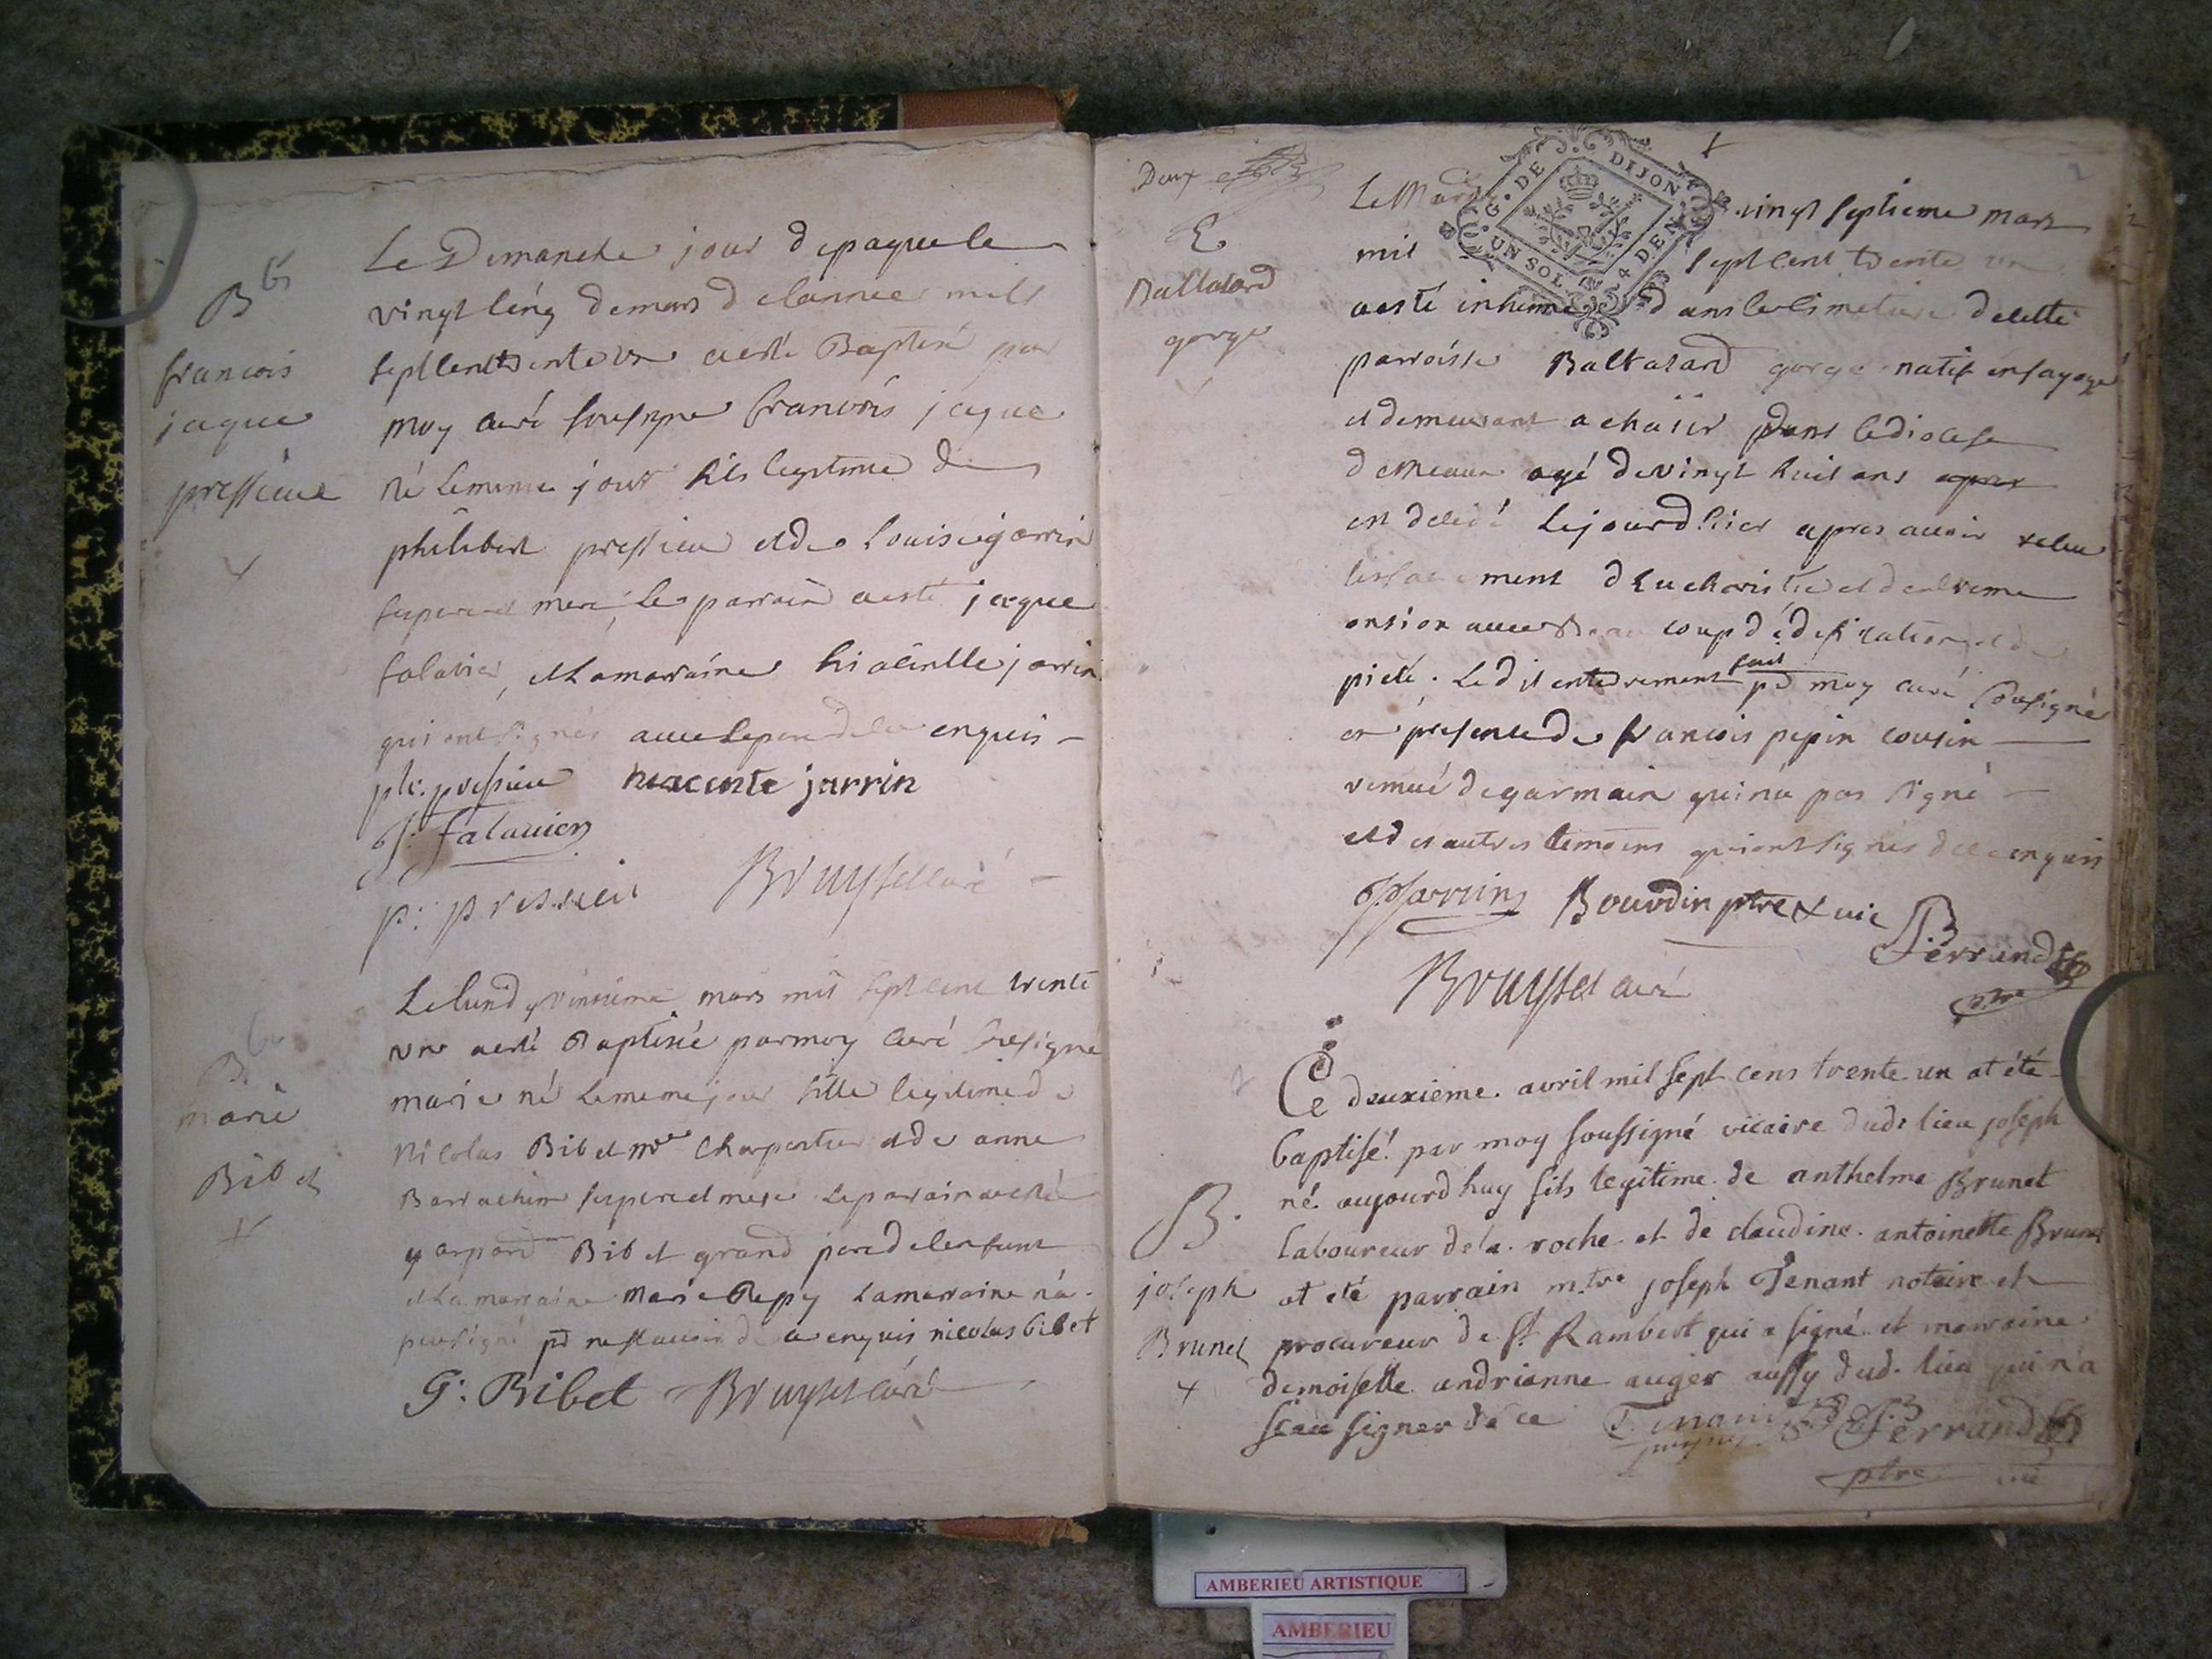 Bts
francois
jaque
pressieu
Le Dimanche jour depaque le
vingt cinq demars delannee mil
sept cent trente un aesté Baptisé par
moy curé sousigne francois jaque
né lememe jour fils legitime de
philibert pressieu et de Louise jarrin
ses pere et mere, Le parrain aesté jaque
falavier, et la marraine hiacinthe jarrin
qui ont signés avec le pere de ce enquis
ph: pressieu hiacinte jarrin
J: falauier
p: pressieu Bruyset curé
B
marie
Bibet
Le lundy mars mil sept cent trente
un aesté Baptisée par moy curé sousigné
marie né lememe jour fille legitime de
Nicolas Bibet me Charpentier et de anne
ses pere et mere le parrain aesté
gaspard Bibet grand pere de lenfant
et la marraine marie Repy la marraine na
pas signé pr ne scavoir de ce enquis nicolas bibet
G: Bibet Bruyset curé
Deux
E.
Baltazard
gorge
Le Mardy vingt septieme mars
mil sept cent trente un
aesté inhumé dans le cimetiere de cette
parroisse Baltazard gorge natif
et demeurant a dans le diocese
de meaux agé de vingt huit ans apres
est decedé le jour d'hier apres avoir receu
les sacrement d Eucharistie et d extreme
onsion avec beaucoup d édification et de
pieté. Le dit enterrement fait pr moy curé sousigné
en presence de francois pepin cousin
remué de garmain qui na pas signé
et des autres temoins qui ont signés de ce enquis
Jarrin Bourdin ptre & vic
Ferrand
ptre
Bruyset curé
B.
joseph
Brunet
Ce deuxieme. avril mil sept cens trente un at été
baptisé par moy soussigné vicaire dudt lieu joseph
né aujourdhuy fils legitime de anthelme Brunet
laboureur de la roche et de claudine. antoinette Brunet
at eté parrain mtre joseph Tenant notaire et
procureur de St Rambert qui a signé et marraine
demoiselle andrianne auger aussy dud. lieu qui n'a
sceu signer de ce Tenant Ferrand
ptre vic
G. DE DIJON
UN SOL 4 DEN.
AMBERIEU ARTISTIQUE
AMBERIEU